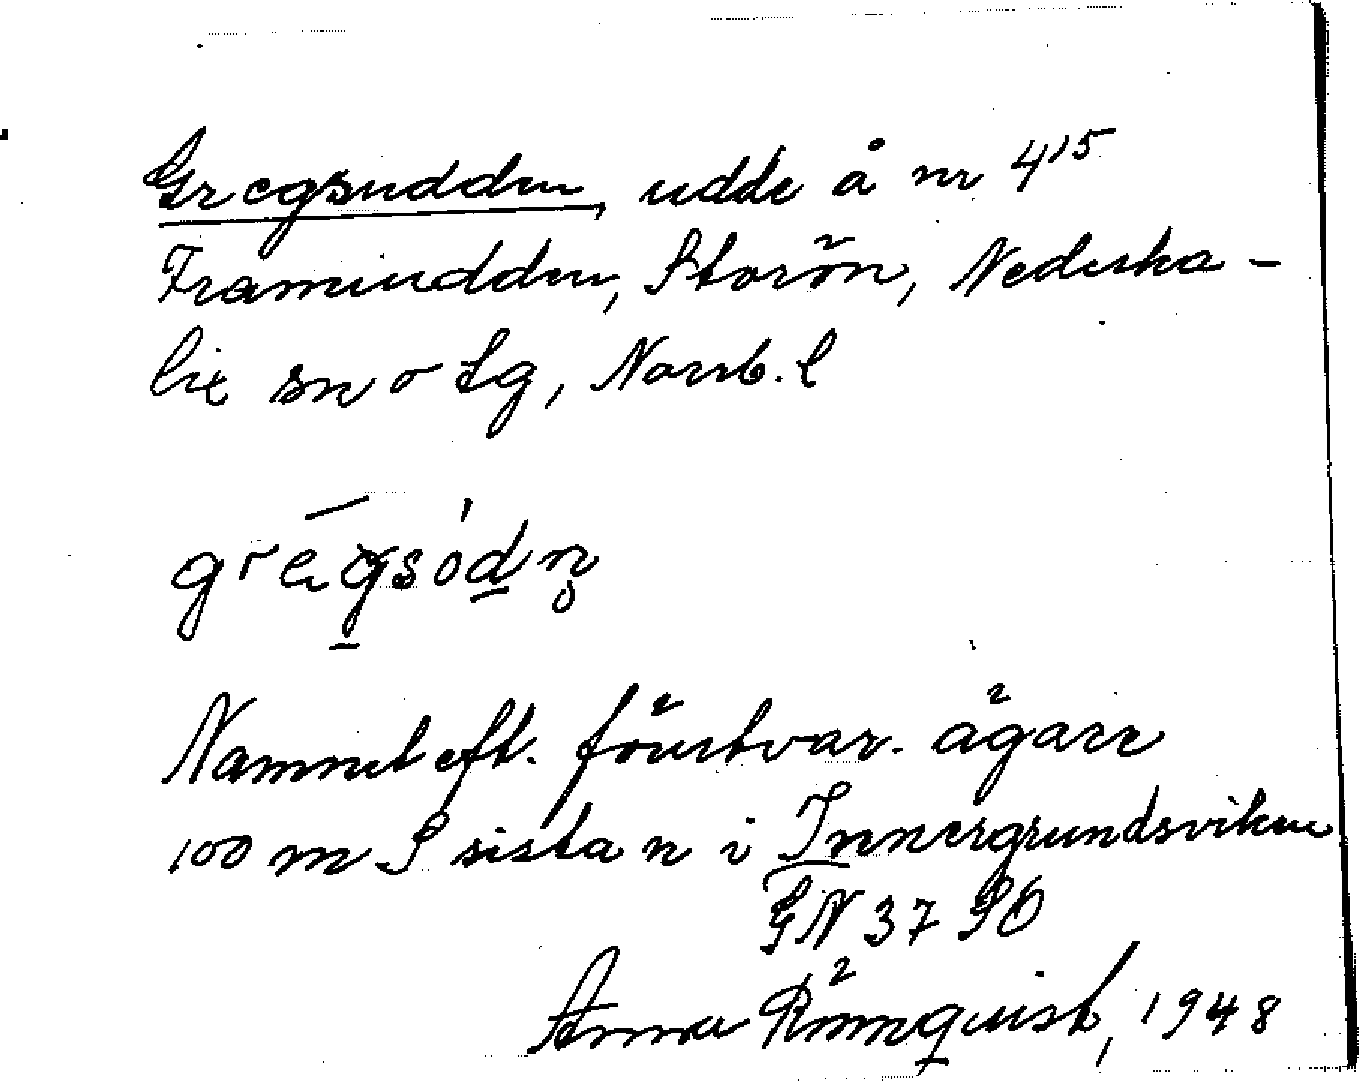 Gregsudden, udde å nr 4¹⁵
Framiudden, Storön, Nederka-
lix sn o tg, Norrb. l
Namnet eft. förutvar. ägare
100 m S sista n i Innergrundsviken
GN 37 SO
Anna Rönnquist, 1948